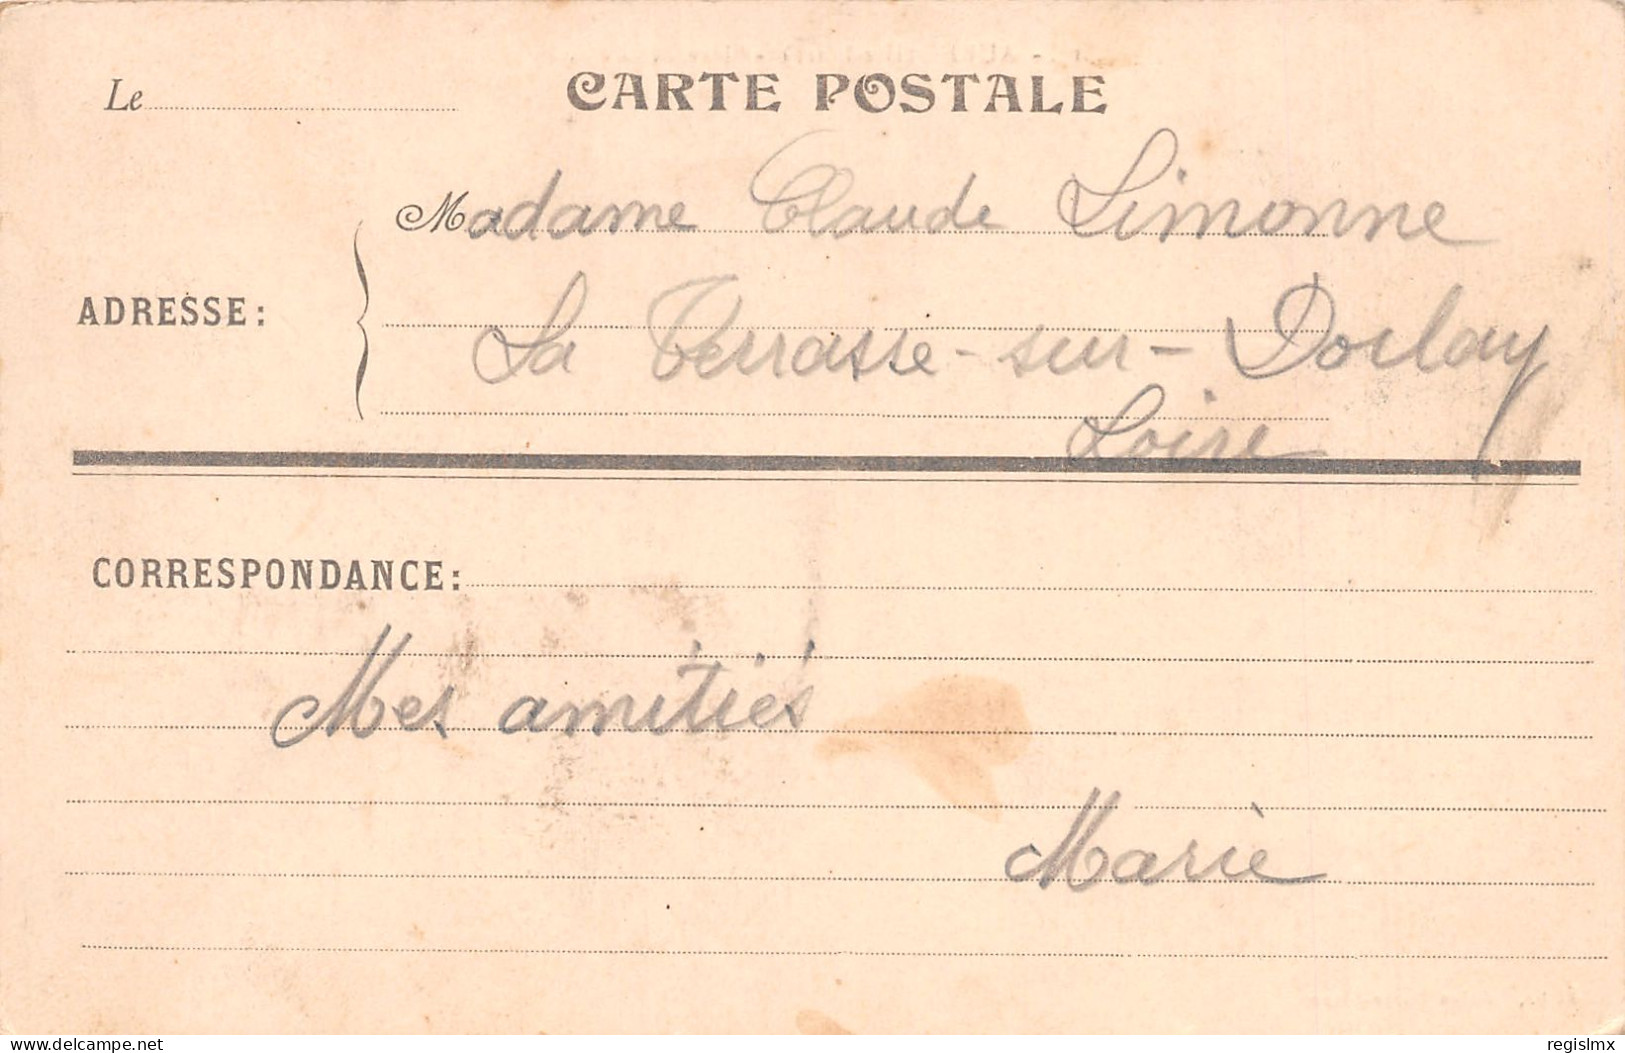 CARTE POSTALE
Le
Madame Claude Limonne
ADRESSE:
La Terrasse-sur-Dorlay
Loire
CORRESPONDANCE:
Mes amitiés
Marie
www.delcampe.net
regislmx